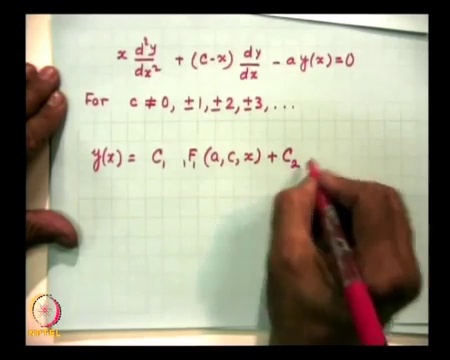 x d²y/dx² + (c-x) dy/dx - a y(x) = 0
For c ≠ 0, ±1, ±2, ±3, ...
y(x) = C₁ ₁F₁ (a, c, x) + C₂
NPTEL